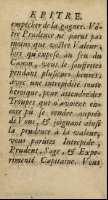 EPITRE.
empêcher de la gagner. Vô-
tre Prudence ne parut pas
moins que vôtre Valeur,
lors qu'exposé, au feu du
Canon, vous le souffrites
pendant plusieurs heures
avec une intrepidité toute
heroïque, pour attendre des
Troupes qui n'avoient en-
core pû se rendre auprés
de vous. Et joignant ainsi
la prudence à la valeur,
vous parutes Intrepide,
Prudent, Sage, & Expe-
rimenté Capitaine. Vous